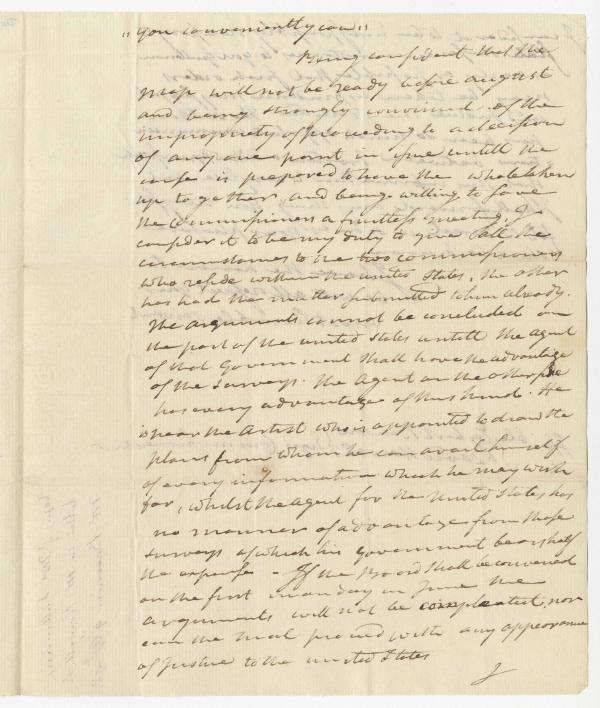 "you conveniently can"
Being confident that the
Map will not be ready before august
and being strongly convinced of the
impropriety of proceeding to a decision
of any one point in issue untill the
cause is prepared to have the whole taken
up together, and being willing to save
the commissioners a fruitless meeting, I
consider it to be my duty to give all the
circumstances to the two commissioners
who reside within the united States, the other
has had the matter submitted to him already.
The arguments cannot be concluded on
the part of the united States untill the agent
of that Government shall have the advantage
of the surveys. the agent on the other side
has every advantage of this kind. He
is near the Artist who is appointed to draw the
plans from whom he can avail himself
of every information which he may wish
for, whilst the agent for the United States has
no manner of advantage from those
surveys of which his government bears half
the expense - If the Board shall be convened
on the first monday in June the
arguments will not be completed, nor
can the trial proceed with any appearance
of Justice to the united States
I